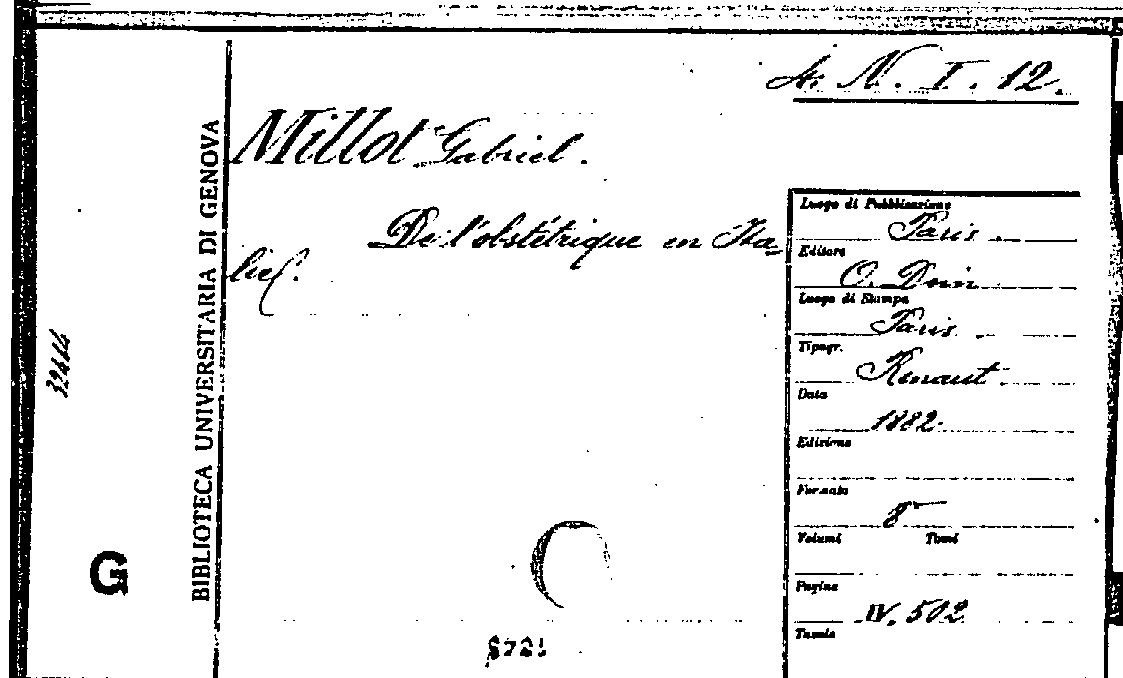 4. N. I. 12.
Millot Gabriel.
De l'obstétrique en Ita-
lie.
BIBLIOTECA UNIVERSITARIA DI GENOVA
32444
G
Luogo di Pubblicazione
Paris
Editore
O. Doin
Luogo di Stampa
Paris
Tipogr.
Renaut
Data
1882.
Edizione
Formato
8°
Volumi Tomi
Pagine
IV, 502
Tavole